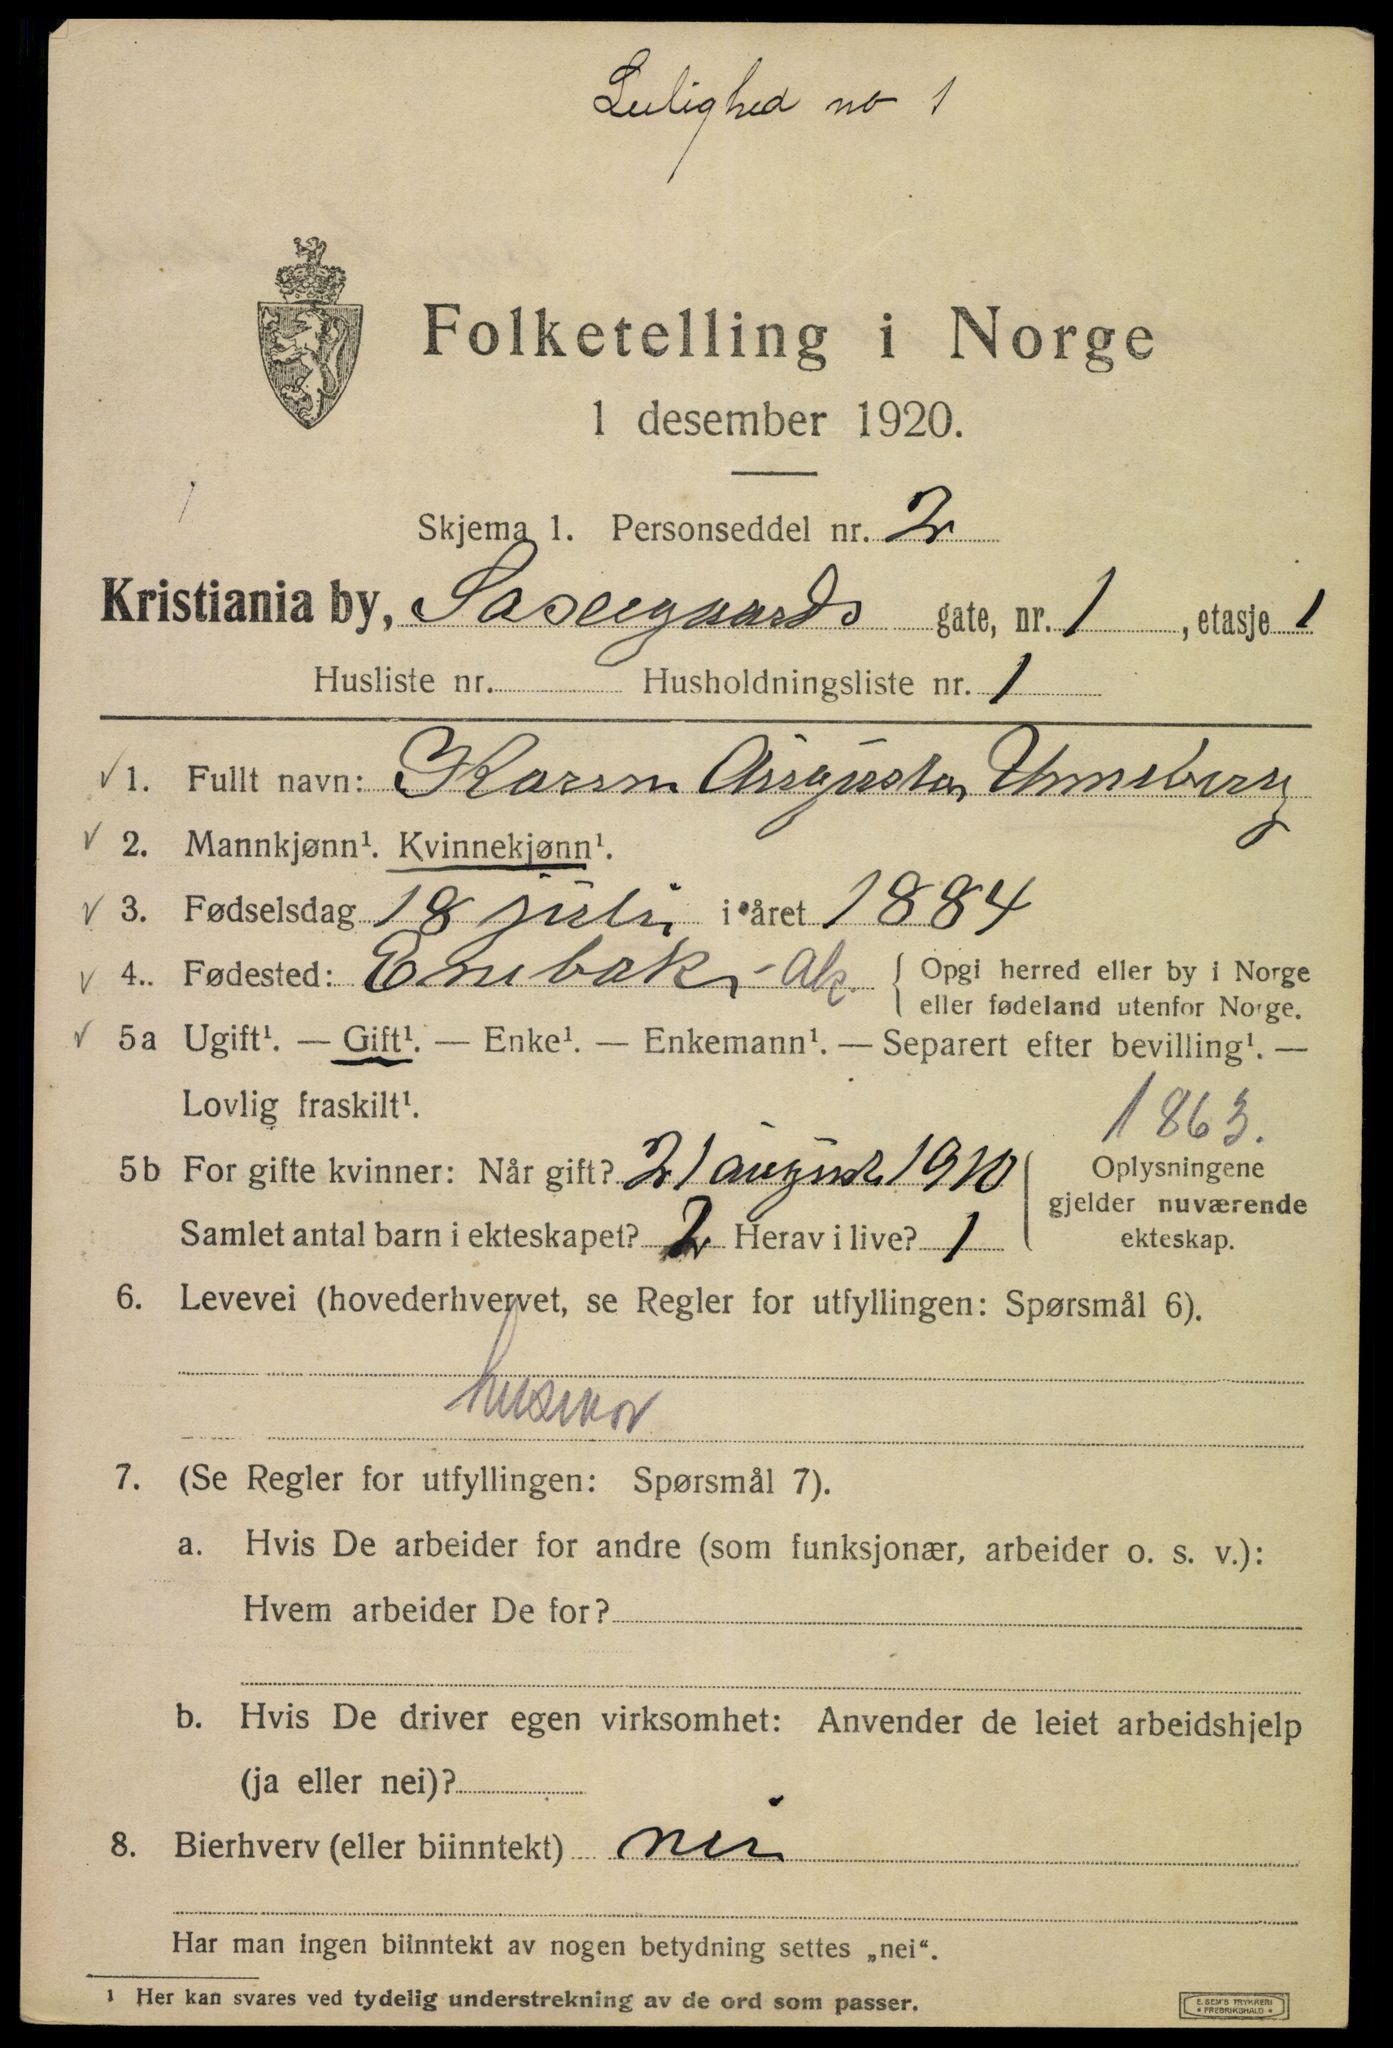 Leilighed no 1
Folketelling i Norge
1 desember 1920.
Skjema 1. Personseddel nr. 2
Kristiania by, Saxegaards gate, nr. 1, etasje 1
Husliste nr. Husholdningsliste nr. 1
1. Fullt navn: Karen Augusta Unneberg
2. Mannkjønn¹. Kvinnekjønn¹.
3. Fødselsdag 18 juli i året 1884
4. Fødested: Enebak - Ak. { Opgi herred eller by i Norge
eller fødeland utenfor Norge.
5a Ugift¹. — Gift¹. — Enke¹. — Enkemann¹. — Separert efter bevilling¹. —
Lovlig fraskilt¹.
1863.
5b For gifte kvinner: Når gift? 21 august 1910
Samlet antal barn i ekteskapet? 2 Herav i live? 1
Oplysningene
gjelder nuværende
ekteskap.
6. Levevei (hovederhvervet, se Regler for utfyllingen: Spørsmål 6).
husmor
7. (Se Regler for utfyllingen: Spørsmål 7).
a. Hvis De arbeider for andre (som funksjonær, arbeider o. s. v.):
Hvem arbeider De for?
b. Hvis De driver egen virksomhet: Anvender de leiet arbeidshjelp
(ja eller nei)?
8. Bierhverv (eller biinntekt) nei
Har man ingen biinntekt av nogen betydning settes „nei“.
¹ Her kan svares ved tydelig understrekning av de ord som passer.
E. SEM'S TRYKKERI
* FREDRIKSHALD *